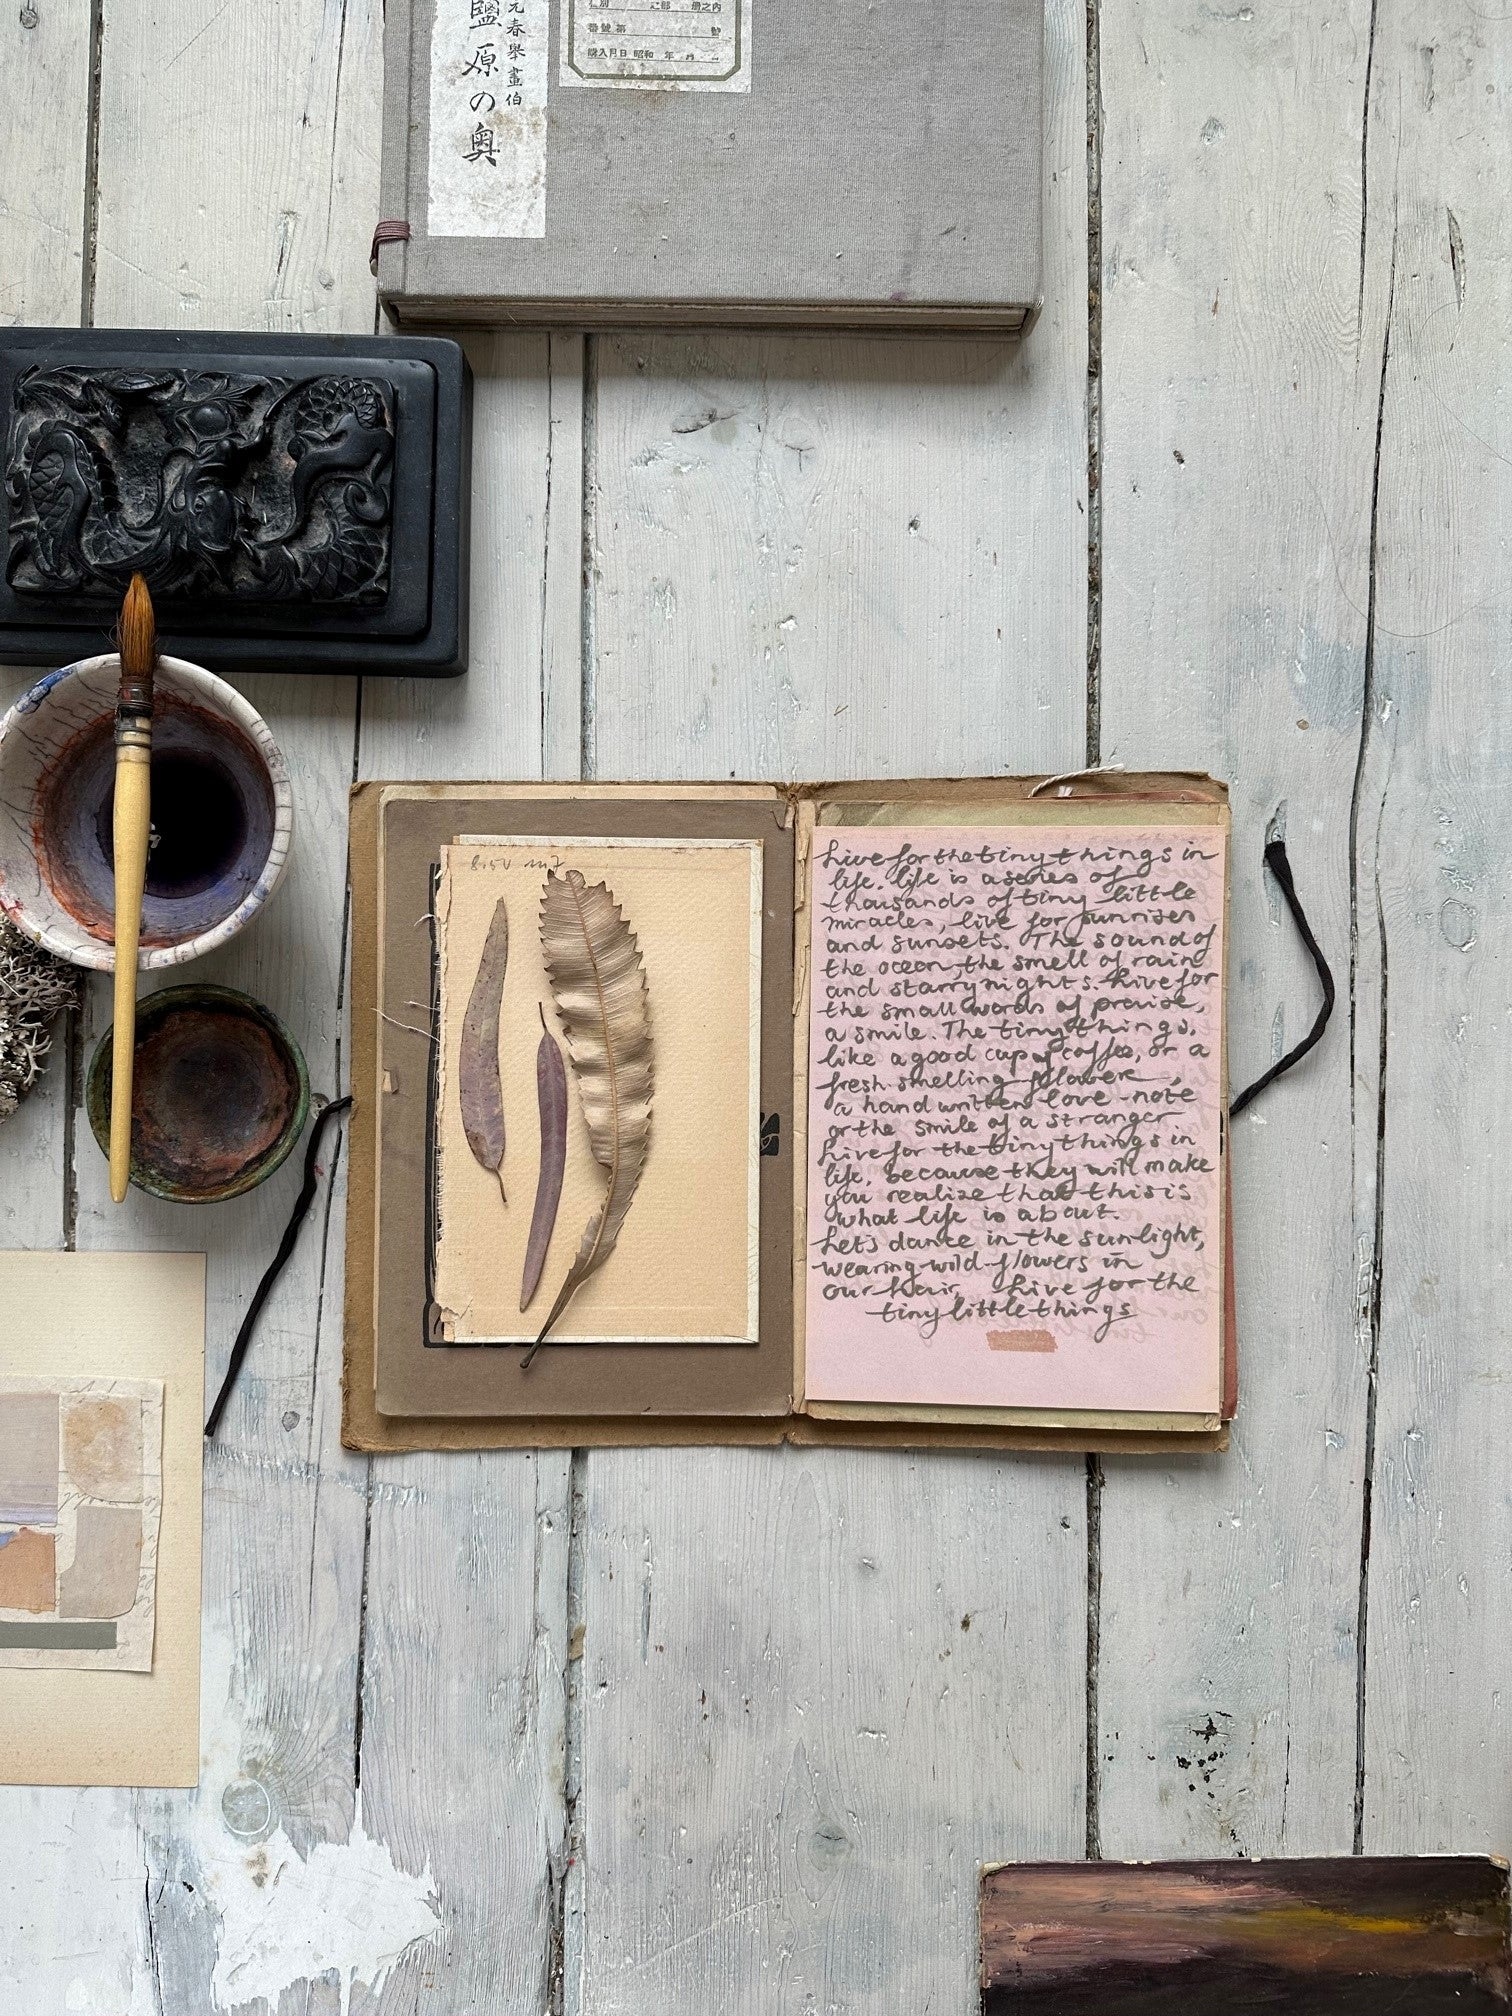 元春舉畫伯
鹽原の奥
番號 第 號
購入月日 昭和 年 月
Live for the tiny things in
life. life is a series of
thousands of tiny little
miracles, live for sunrises
and sunsets. The sound of
the ocean, the smell of rain
and starry nights. Live for
the small words of praise,
a smile. The tiny things,
like a good cup of coffee, or a
fresh smelling flower,
a hand written love-note
or the smile of a stranger
Live for the tiny things in
life, because they will make
you realize that this is
what life is about.
Let's dance in the sunlight,
wearing wild flowers in
our hair, Live for the
tiny little things